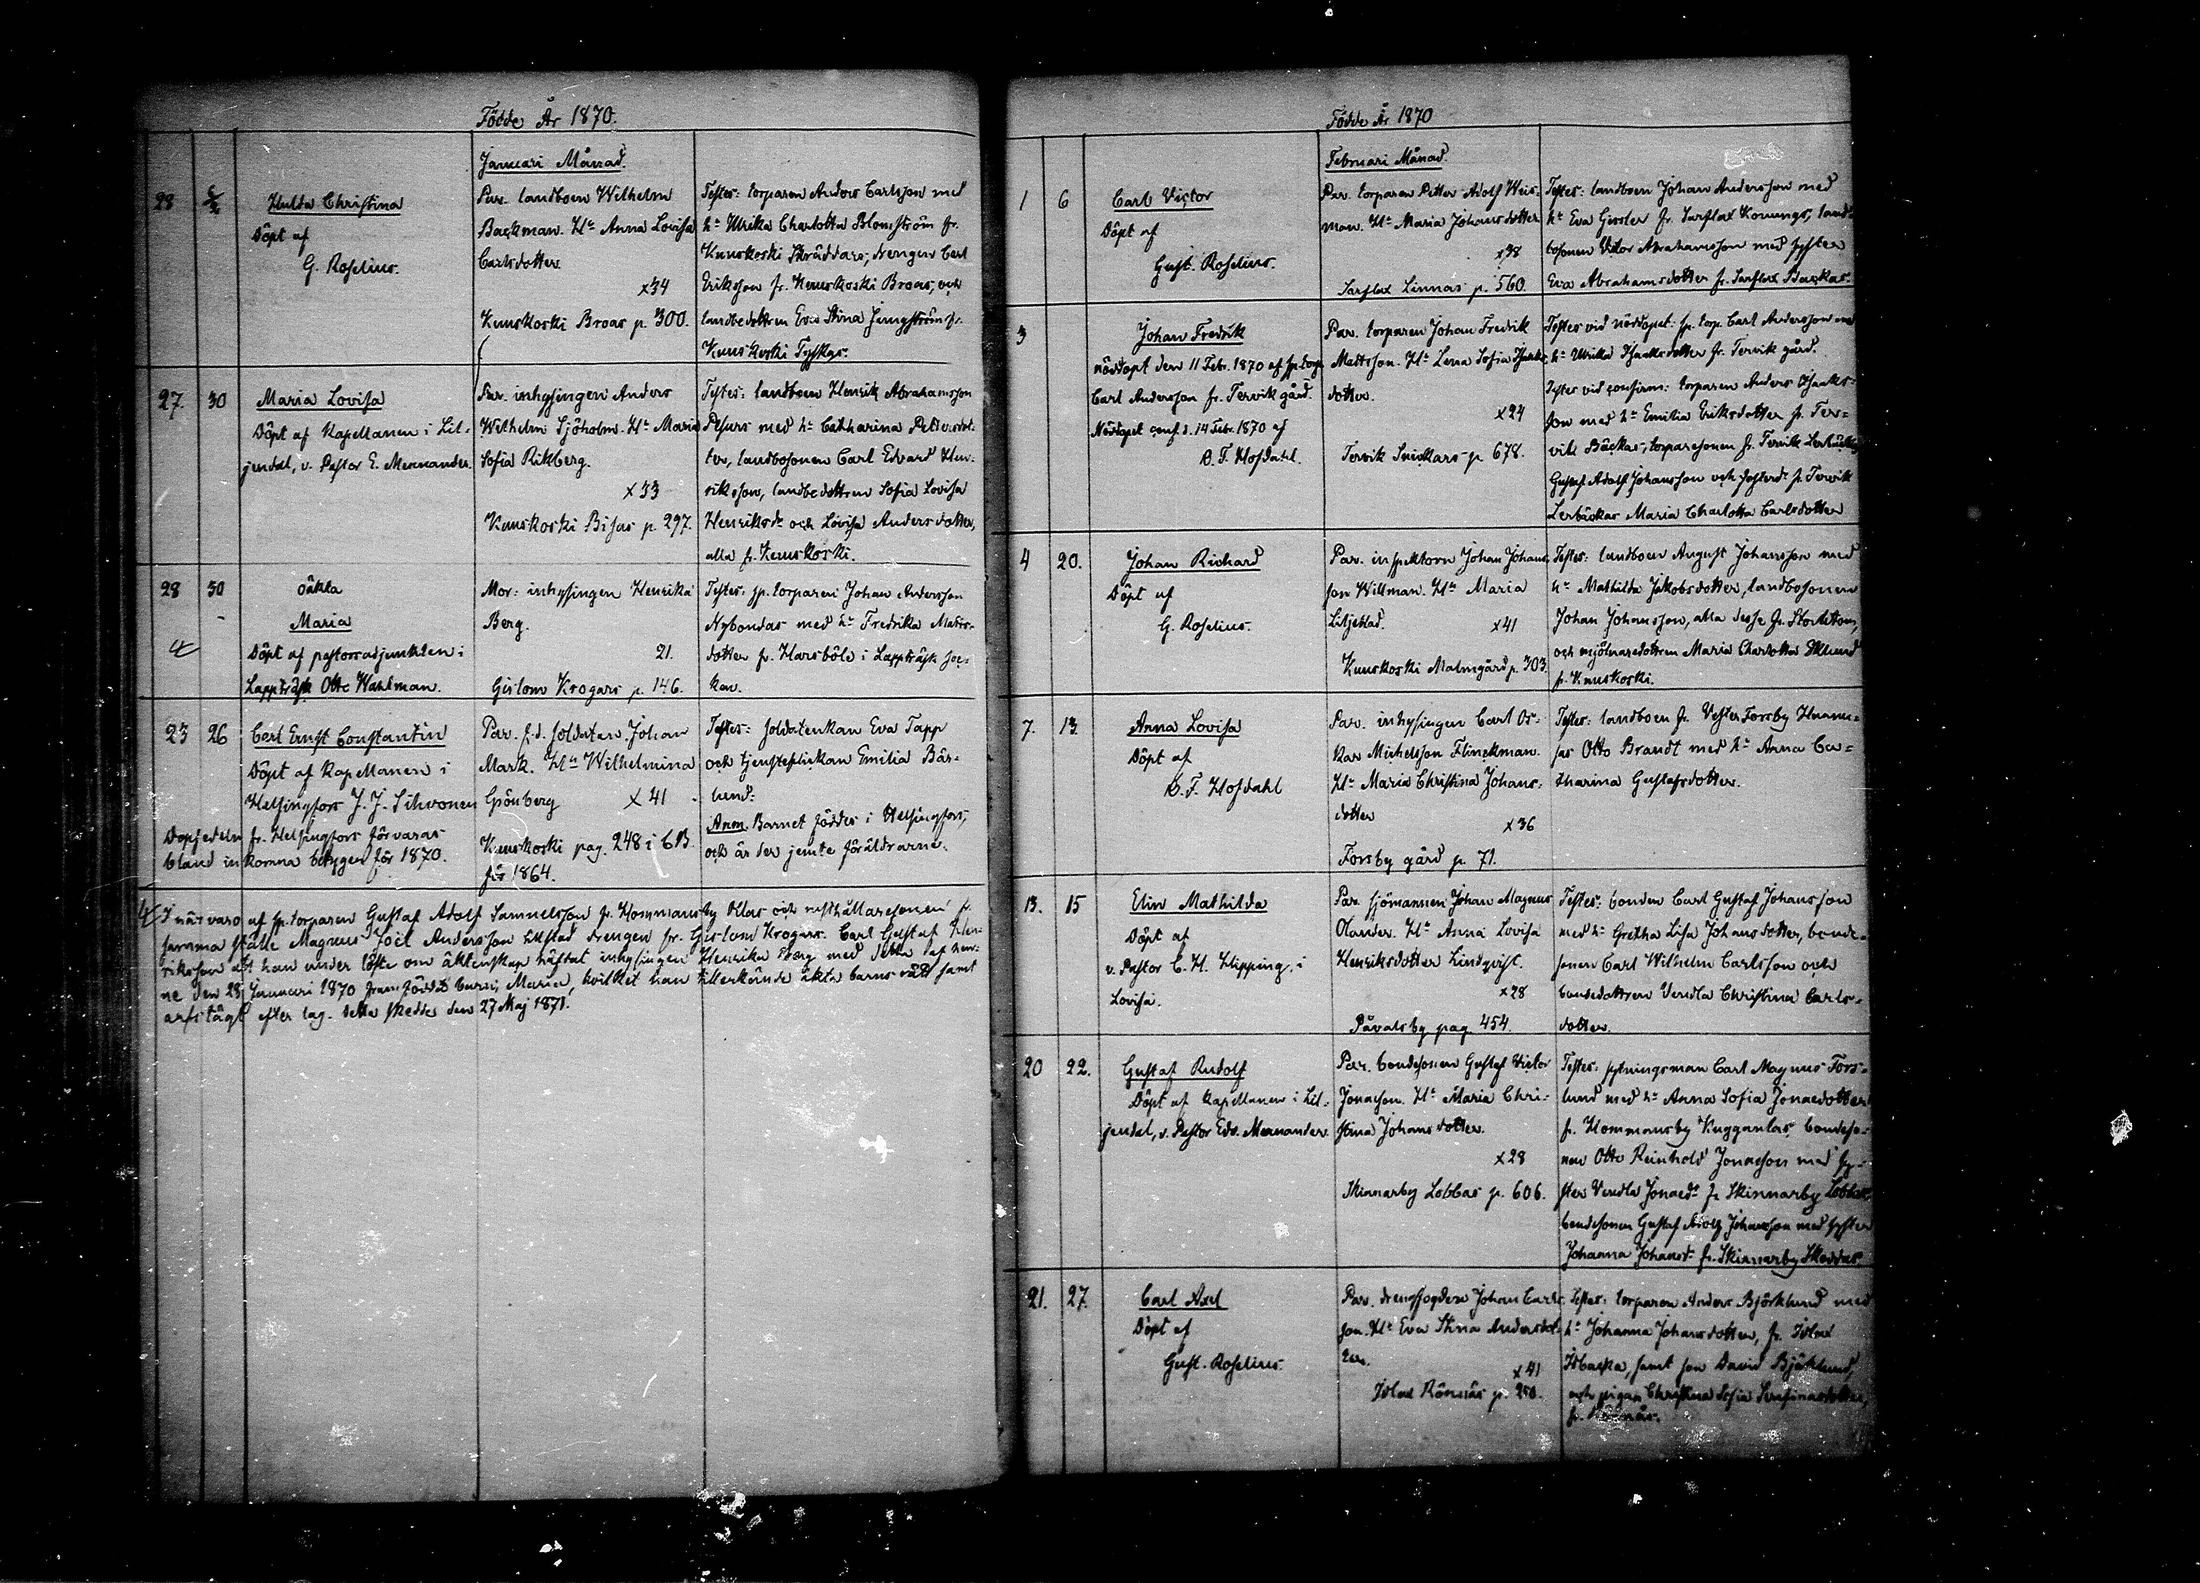 Födde År 1870.
Januari Månad.
28 6/2 Hulda Christina
Döpt af
G. Roselius.
Par. landboen Wilhelm
Backman. Hu Anna Lovisa
Carlsdotter
x34
Kuuskoski Broas p. 300.
Testes: torparen Anders Carlsson med
h: Ulrika Charlotta Blomström fr.
Kuuskoski Skräddars; drengen Carl
Eriksson fr. Kuuskoski Broas, och
landbodottren Eva Stina Ljungström fr.
Kuuskoski Tyskas.
27. 30 Maria Lovisa
Döpt af Kapellanen i Lil-
jendal, v. Pastor E. Mennander.
Par. inhysingen Anders
Wilhelm Sjöholm. Hu Maria
Sofia Rikberg.
x33
Kuuskoski Bisas p. 297.
Testes: landboen Henrik Abrahamsson
med h: Catharina Pettersdot-
ter, landbosonen Carl Edvard Hen-
riksson, landbodottren Sofia Lovisa
Henriksdr och Lovisa Andersdotter,
alla fr. Kuuskoski.
28 30 oäkta
Maria
Döpt af pastorsadjunkten i
Lappträsk Otto Wahlman.
Mor: inhysingen Henrika
Berg.
21.
Gislom Krogars p. 146.
Testes: sp. torparen Johan Andersson
Nybondas med h: Fredrika Matts-
dotter fr. Harsböle i Lappträsk soc-
ken.
23 26 Carl Ernst Constantin
Döpt af Kapellanen i
Helsingfors J. J. Sihvonen
Dopsedeln fr. Helsingfors förvaras
bland inkomna betygen för 1870.
Par. f.d. soldaten Johan
Mark. Hu Wilhelmina
Grönberg x 41
Kuuskoski pag. 248 i CB.
för 1864.
Testes: soldatenkan Eva Tapp
och tjensteflickan Emilia Bär-
lund.
Anm. Barnet föddes i Helsingfors,
och är der jemte föräldrarne.
I närvaro af sp. torparen Gustaf Adolf Samuelsson fr. Hommansby Ollas och rusthållaresonen fr.
samma ställe Magnus Joel Andersson drengen fr. Gislom Krogars Carl Gustaf Hen-
riksson att han under löfte om äktenskap häfdat inhysingen Henrika Berg med detta af hen-
ne den 28 Januari 1870 framfödda barn, Maria, hvilket han tillerkände äkta barns rätt samt
arfstägt efter lag. Detta skedde den 27 Maj 1871.
Födde År 1870
Februari Månad.
1 6 Carl Victor
Döpt af
Gust. Roselius.
Par. torparen Petter Adolf Weis-
man. Hu Maria Johansdotter
x38
Sarflax Linnas p. 560.
Testes: landboen Johan Andersson med
h: Eva Gissler fr. Sarflax Konungs, land-
bosonen Victor Abrahamsson med syster
Eva Abrahamsdotter fr. Sarflax Backas.
3 Johan Fredrik
nöddöpt den 11 Febr. 1870 af sp. torp.
Carl Andersson fr. Tervik gård.
Nöddopet conf. d. 14 Febr. 1870 af
C. F. Hofdahl.
Par. torparen Johan Fredrik
Mattsson. Hu Lena Sofia Isaks-
dotter.
x24
Tervik Snickars p. 678.
Testes vid nöddopet: sp. torp. Carl Andersson med
h: Ulrika Isaksdotter fr. Tervik gård.
Testes vid confirm: torparen Anders Isaks-
son med h: Emilia Eriksdotter fr. Ter-
vik Bäckas, torparesonen fr. Tervik Lerbäckas
Gustaf Adolf Johansson och fr. Tervik
Lerbäckas Maria Charlotta Carlsdotter
4 20. Johan Richard
Döpt af
G. Roselius.
Par. inspektorn Johan Johans-
son Willman. Hu Maria
Liljeblad. x41
Kuuskoski Malmgård p. 303.
Testes: landboen August Johansson med
h: Mathilda Jakobsdotter, landbosonen
Johan Johansson, alla desse fr.
och mjölnaredottren Maria Charlotta Eklund
fr. Kuuskoski.
7. 13. Anna Lovisa
Döpt af
C. F. Hofdahl
Par. inhysingen Carl Os-
kar Michelsson Flinckman.
Hu Maria Christina Johans-
dotter
x36
Forsby gård p. 71.
Testes: landboen fr. Vester Forsby Hannu-
sas Otto Brandt med h: Anna Ca-
tharina Gustafsdotter.
13. 15 Elin Mathilda
Döpt af
v. Pastor C. H. Hipping, i
Lovisa.
Par. sjömannen Johan Magnus
Olander. Hu Anna Lovisa
Henriksdotter Lindqvist.
x28
Påvalsby pag. 454.
Testes: bonden Carl Gustaf Johansson
med h: Gretha Lisa Johansdotter, bonde-
sonen Carl Wilhelm Carlsson och
bondedottren Vendla Christina Carls-
dotter.
20 22. Gustaf Rudolf
Döpt af Kapellanen i Lil-
jendal, v. Pastor Edv. Mennander.
Par. bondesonen Gustaf Victor
Jonasson. Hu Maria Chri-
stina Johansdotter.
x28
Skinnarby Lobbas p. 606.
Testes: sytningsman Carl Magnus Fors-
lund med h: Anna Sofia Jonaedotter
fr. Hommansby Kugganlas, bondeso-
nen Otto Reinhold Jonasson med sy-
ster Vendla Jonaedr fr. Skinnarby Lobbas,
bondesonen Gustaf Adolf Johansson med syster
Johanna Johansdr fr. Skinnarby Skeddas
21. 27. Carl Axel
Döpt af
Gust. Roselius.
Par. drengfogden Johan Carls-
son. Hu Eva Stina Andersdot-
ter.
x41
Isläx Rönnäs p. 250.
Testes: torparen Anders Björklund med
h: Johanna Johansdotter, fr. Isläx
Isbacka, samt son David Björklund,
och pigan Christina Sofia Serafinasdotter,
fr. Rönnäs.